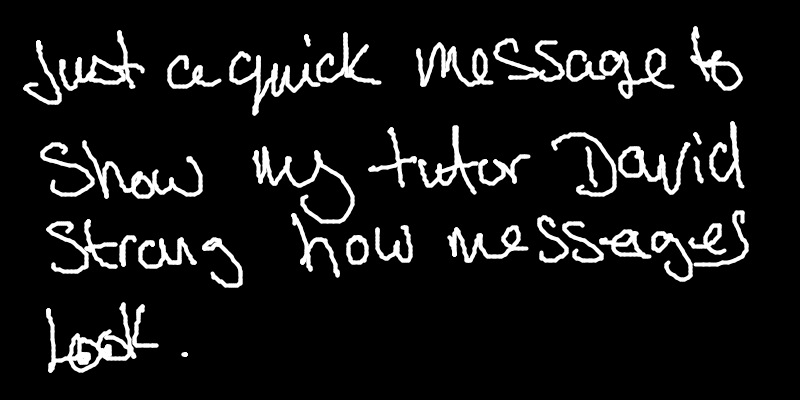 Just a quick message to
Show my tutor David
Strang how messages
Look.